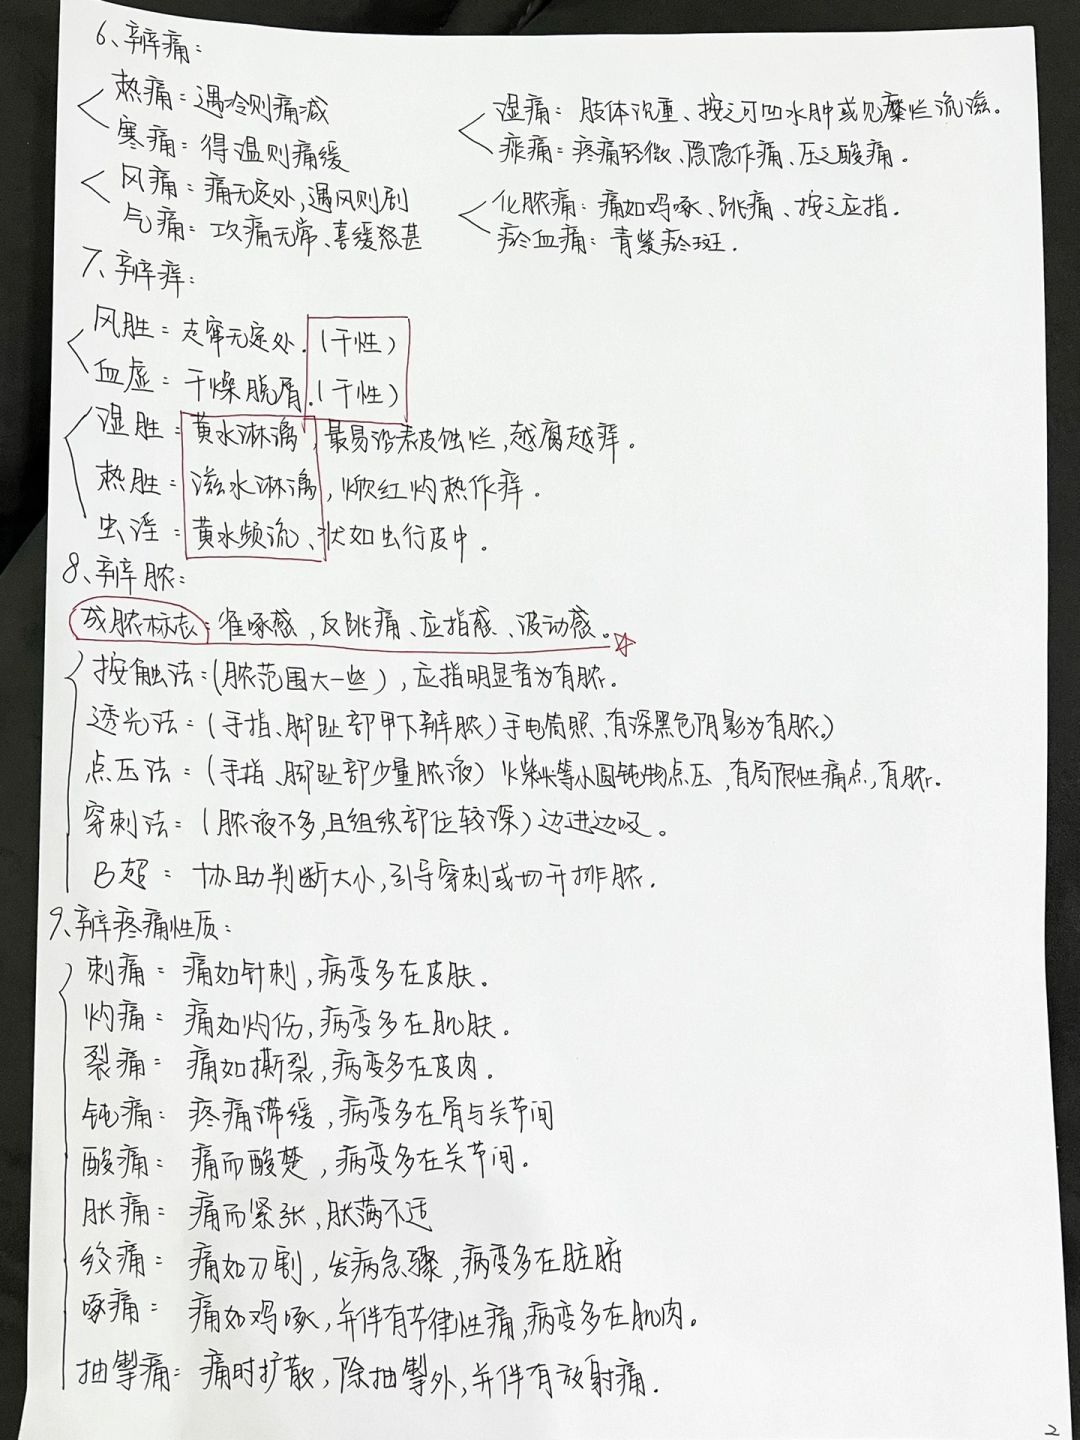 6、辨痛:
热痛:遇冷则痛减
寒痛:得温则痛缓
风痛:痛无定处,遇风则剧
气痛:攻痛无常、喜缓怒甚
湿痛:肢体沉重、按之可凹水肿或见糜烂流滋。
痰痛:疼痛轻微、隐隐作痛、压之酸痛。
化脓痛:痛如鸡啄、跳痛、按之应指.
瘀血痛:青紫瘀斑.
7、辨痒:
风胜:走窜无定处.(干性)
血虚:干燥脱屑.(干性)
湿胜:黄水淋漓,最易沿表皮蚀烂,越腐越痒。
热胜:滋水淋漓,焮红灼热作痒.
虫淫:黄水频流、状如虫行皮中.
8、辨脓:
成脓标志:雀啄感,反跳痛、应指感、波动感。
按触法:(脓范围大一些),应指明显者为有脓.
透光法:(手指、脚趾部甲下辨脓)手电筒照、有深黑色阴影为有脓。)
点压法:(手指、脚趾部少量脓液)火柴头等小圆钝物点压,有局限性痛点,有脓.
穿刺法:(脓液不多,且组织部位较深)边进边吸。
B超:协助判断大小,引导穿刺或切开排脓.
9、辨疼痛性质:
刺痛:痛如针刺,病变多在皮肤.
灼痛:痛如灼伤,病变多在肌肤.
裂痛:痛如撕裂,病变多在皮肉.
钝痛:疼痛滞缓,病变多在骨与关节间
酸痛:痛而酸楚,病变多在关节间.
胀痛:痛而紧张,胀满不适
绞痛:痛如刀割,发病急骤,病变多在脏腑
啄痛:痛如鸡啄,并伴有节律性痛,病变多在肌肉。
抽掣痛:痛时扩散,除抽掣外,并伴有放射痛.
2